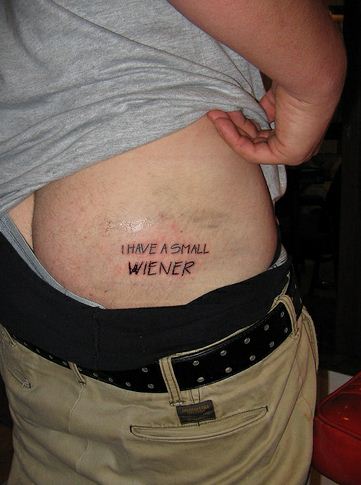 I HAVE A SMALL
WIENER